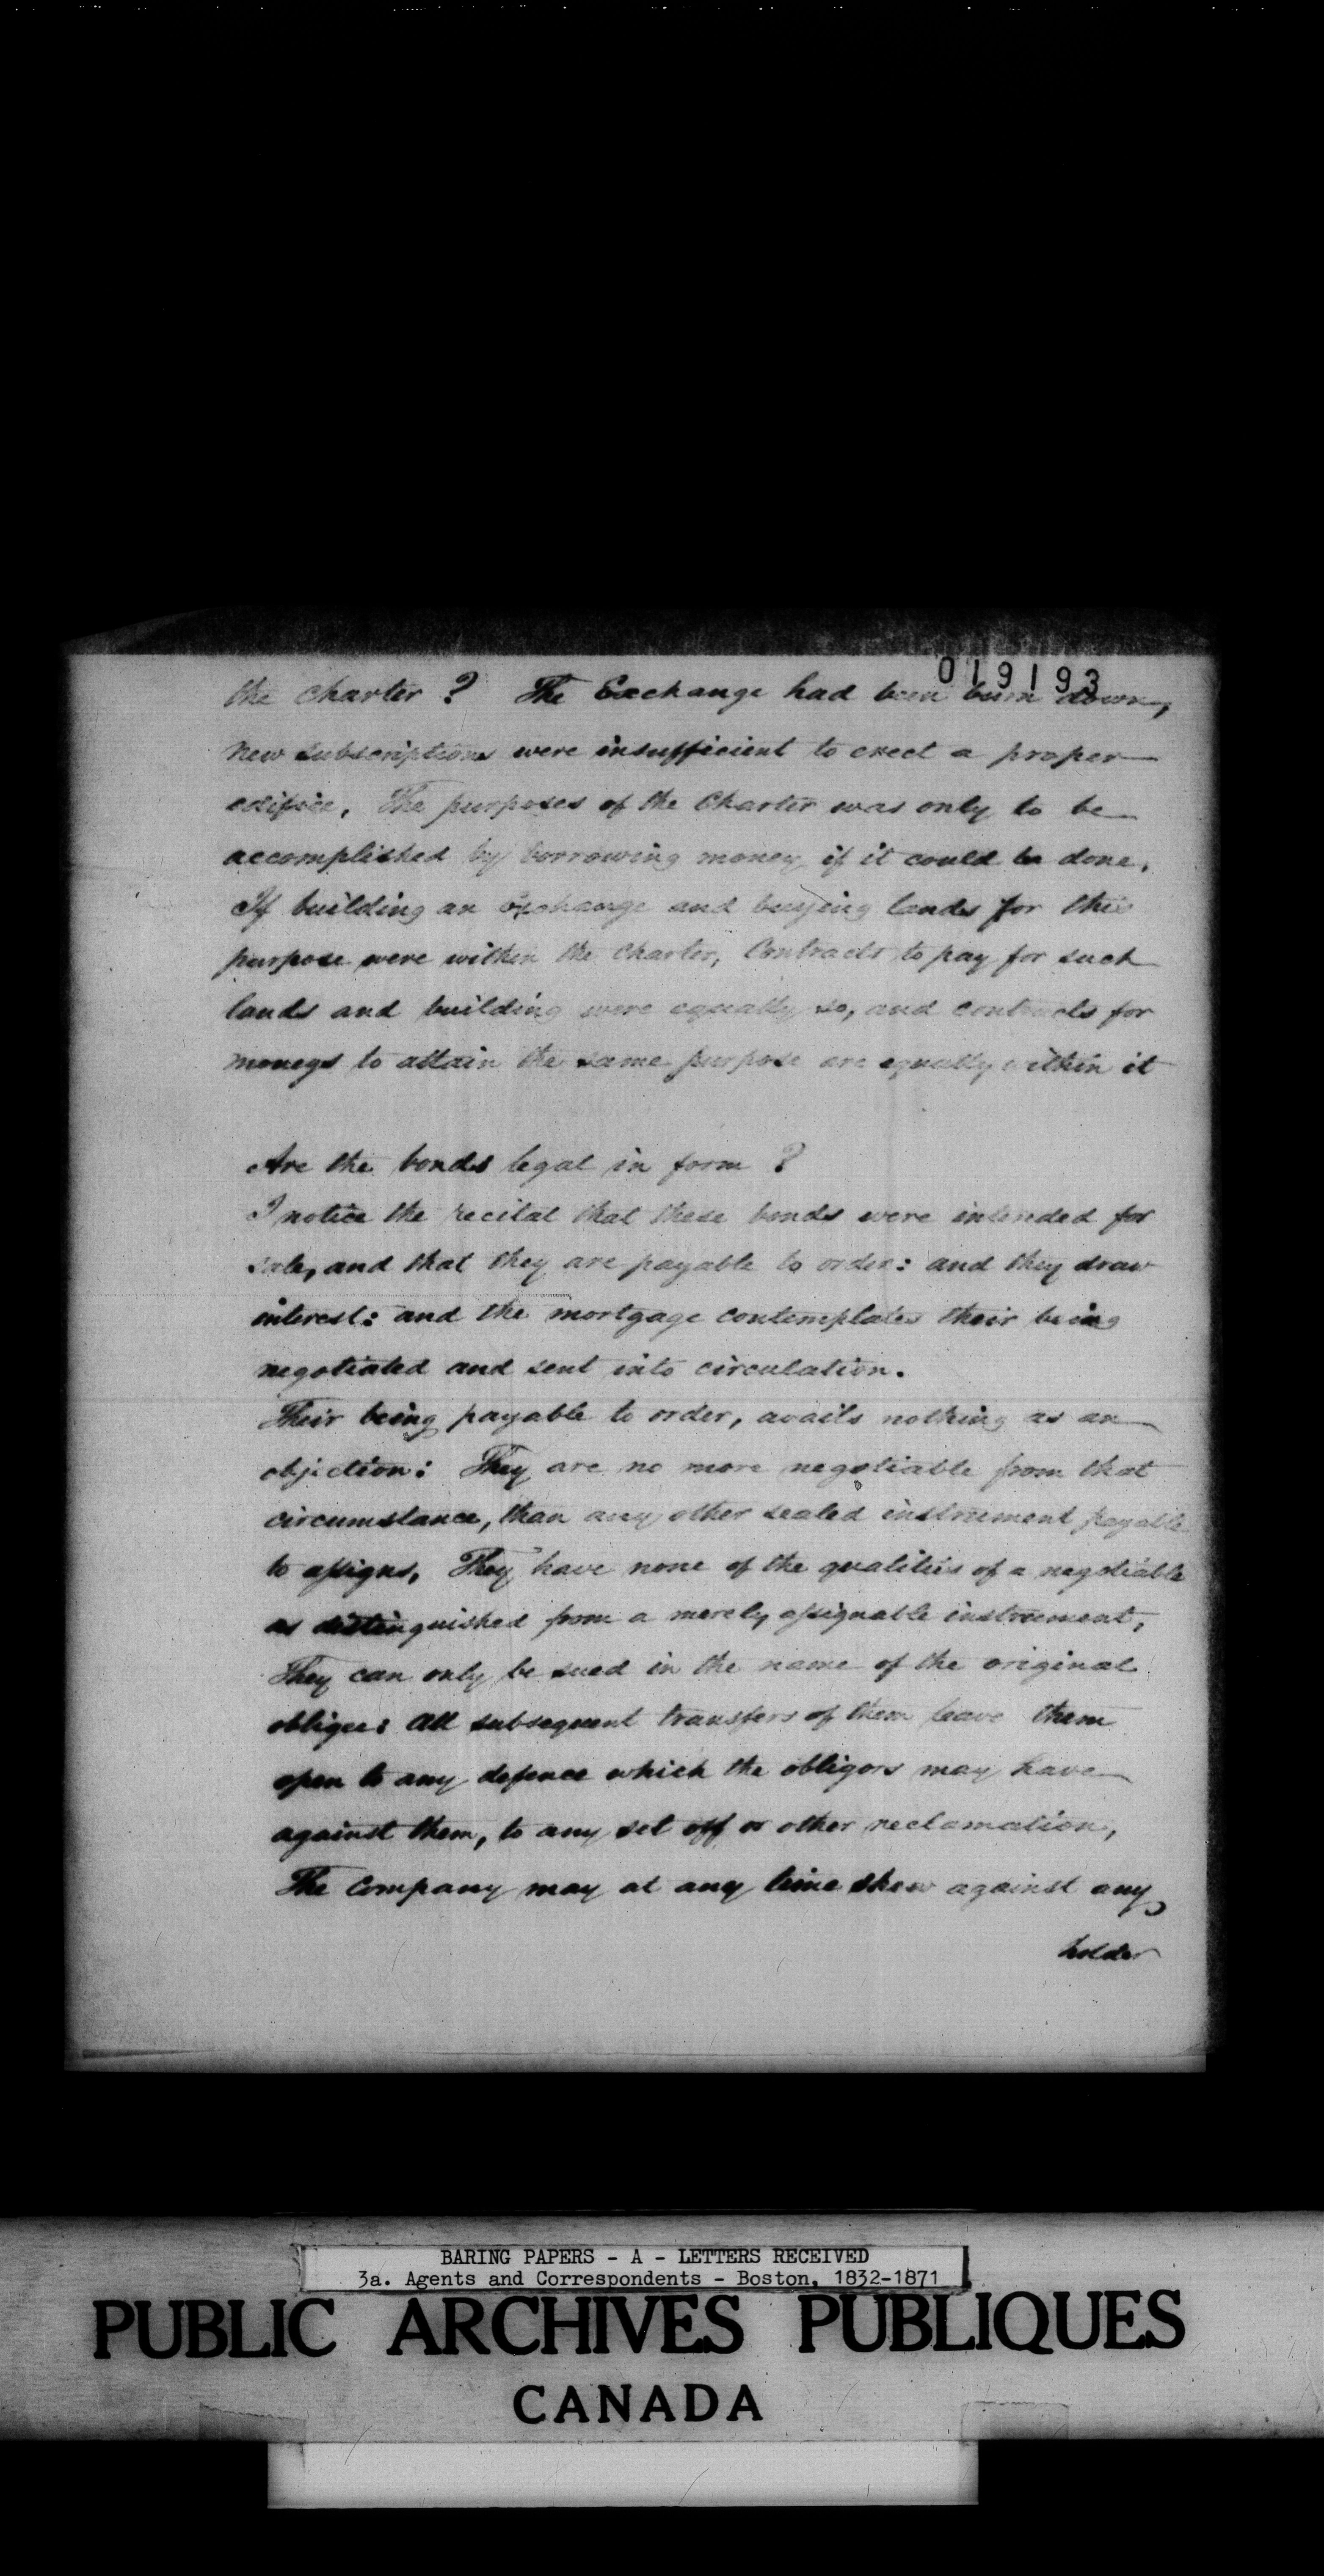 019193
the charter ? The Exchange had been burn down,
new subscriptions were insufficient to erect a proper
edifice. The purposes of the Charter was only to be
accomplished by borrowing money if it could be done.
If building an Exchange and buying lands for this
purpose were within the Charter, Contracts to pay for such
lands and building were equally so, and contracts for
moneys to attain the same purpose are equally within it
Are the bonds legal in form ?
I notice the recital that these bonds were intended for
sale, and that they are payable to order: and they draw
interest: and the mortgage contemplates their being
negotiated and sent into circulation.
Their being payable to order, avails nothing as an
objection: They are no more negotiable from that
circumstance, than any other sealed instrument payable
to assigns. They have none of the qualities of a negotiable
as distinguished from a merely assignable instrument,
They can only be sued in the name of the original
obligee: All subsequent transfers of them leave them
open to any defence which the obligors may have
against them, to any set off or other reclamation,
The Company may at any time shew against any
holder
BARING PAPERS - A - LETTERS RECEIVED
3a. Agents and Correspondents - Boston, 1832-1871
PUBLIC ARCHIVES PUBLIQUES
CANADA